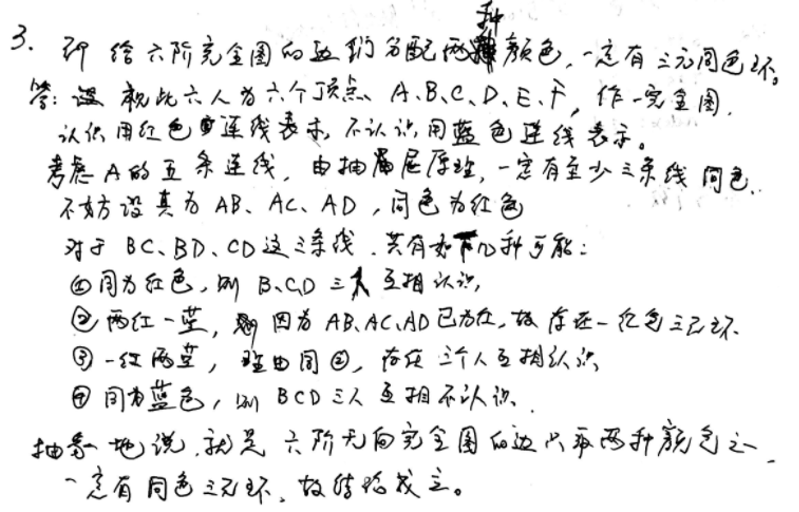 3. 即 给六阶完全图的边们分配两种颜色,一定有三元同色环。
答: 视此六人为六个顶点、A、B、C、D、E、F,作一完全图.
认识用红色连线表示,不认识用蓝色连线表示。
考虑A的五条连线,由抽屉原理,一定有至少三条线同色.
不妨设其为AB、AC、AD,同色为红色
对于BC、BD、CD这三条线.共有如下几种可能:
①同为红色,则B、C、D三人互相认识,
②两红一蓝,因为AB、AC、AD已为红,故存在一红色三元环.
③一红两蓝,理由同②,存在三个人互相认识.
④同为蓝色,则BCD三人互相不认识.
抽象地说,就是六阶无向完全图的边只取两种颜色之一,
一定有同色三元环,故结论成立。